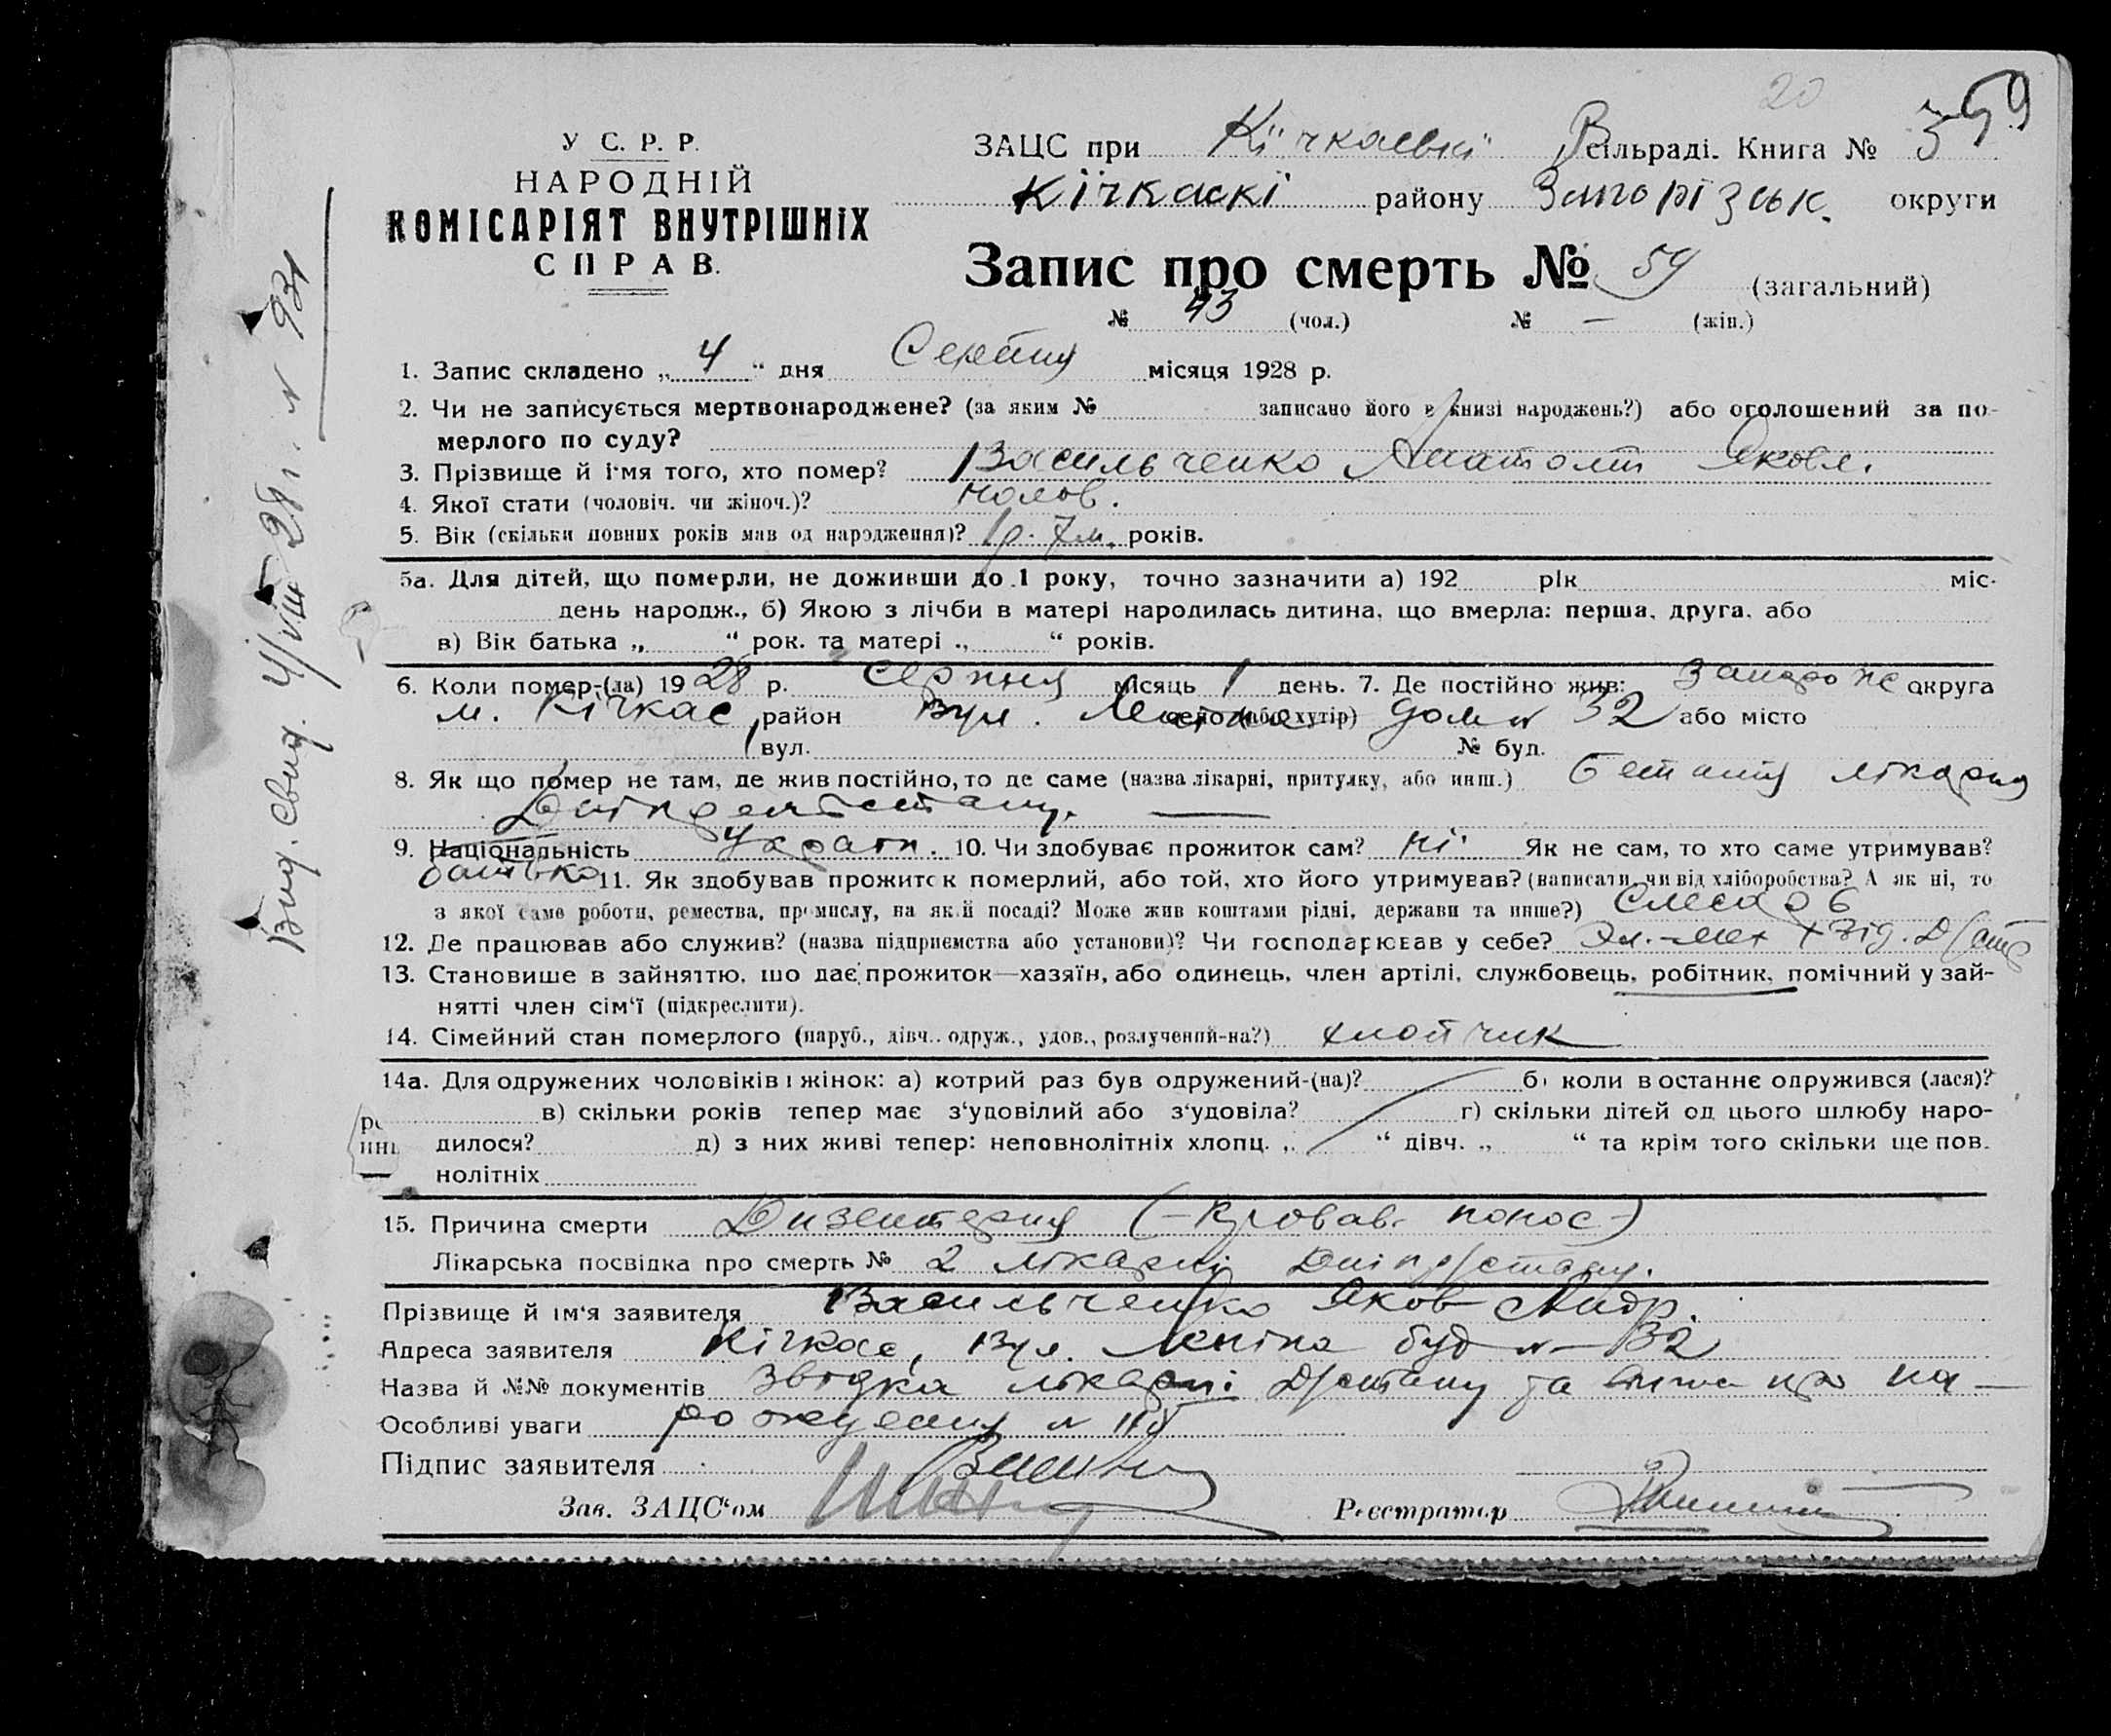 20
59
У С. Р. Р.
НАРОДНІЙ
КОМІСАРІЯТ ВНУТРІШНІХ
СПРАВ.
ЗАЦС при Кічкаській сільраді. Книга № 3
Кічкаскі району Запорізськ. округи
Запис про смерть № 59 (загальний)
№ 43 (чол.) № — (жін.)
1. Запис складено „ 4 “ дня Серпня місяця 1928 р.
2. Чи не записується мертвонароджене? (за яким № записано його в книзі народжень?) або оголошений за по-
мерлого по суду?
3. Прізвище й ім'я того, хто помер? Васильченко Анатолий Яковл.
4. Якої стати (чоловіч. чи жіноч.)? чолов.
5. Вік (скільки повних років мав од народження)? 1 р. 7 м. років.
5а. Для дітей, що померли, не доживши до 1 року, точно зазначити а) 192 рік міс.
день народж., б) Якою з лічби в матері народилась дитина, що вмерла: перша, друга, або
в) Вік батька „ “ рок. та матері „ “ років.
6. Коли помер-(ла) 1928 р. Серпня місяць 1 день. 7. Де постійно жив: Запорожс округа
м. Кічкас район вул. село (або хутір) дом № 32 або місто
вул. № буд.
8. Як що помер не там, де жив постійно, то де саме (назва лікарні, притулку, або инш.) лікарня
9. Національність Украги. 10. Чи здобуває прожиток сам? ні Як не сам, то хто саме утримував?
батько 11. Як здобував прожиток померлий, або той, хто його утримував? (написати чи від хліборобства? А як ні, то
з якої саме роботи, ремества, промислу, на якій посаді? Може жив коштами рідні, держави та инше?) Слесарь
12. Де працював або служив? (назва підприємства або установи)? Чи господарював у себе? Эл.-мех від.
13. Становише в зайняттю, що дає прожиток—хазяїн, або одинець, член артілі, службовець, робітник, помічний у зай-
нятті член сім'ї (підкреслити).
14. Сімейний стан померлого (паруб., дівч., одруж., удов., розлучений-на?) хлопчик
14а. Для одружених чоловіків і жінок: а) котрий раз був одружений-(на)? б) коли в останнє одружився (лася)?
в) скільки років тепер має з'удовілий або з'удовіла? г) скільки дітей од цього шлюбу наро-
дилося? д) з них живі тепер: неповнолітніх хлопц. „ “ дівч. „ “ та крім того скільки ще пов.
нолітніх
15. Причина смерти Дизентерия (-Кровав. понос-)
Лікарська посвідка про смерть № 2 лікарні
Прізвище й ім'я заявителя Васильченко Яков Андр.
Адреса заявителя Кічкас, вул. Леніна буд № 32
Назва й №№ документів Звідка лікарні Д/стану та про на-
Особливі уваги рождения №
Підпис заявителя
Зав. ЗАЦС'ом Реєстратор
Вид. Свид. 4/VIII 28 р. № 931